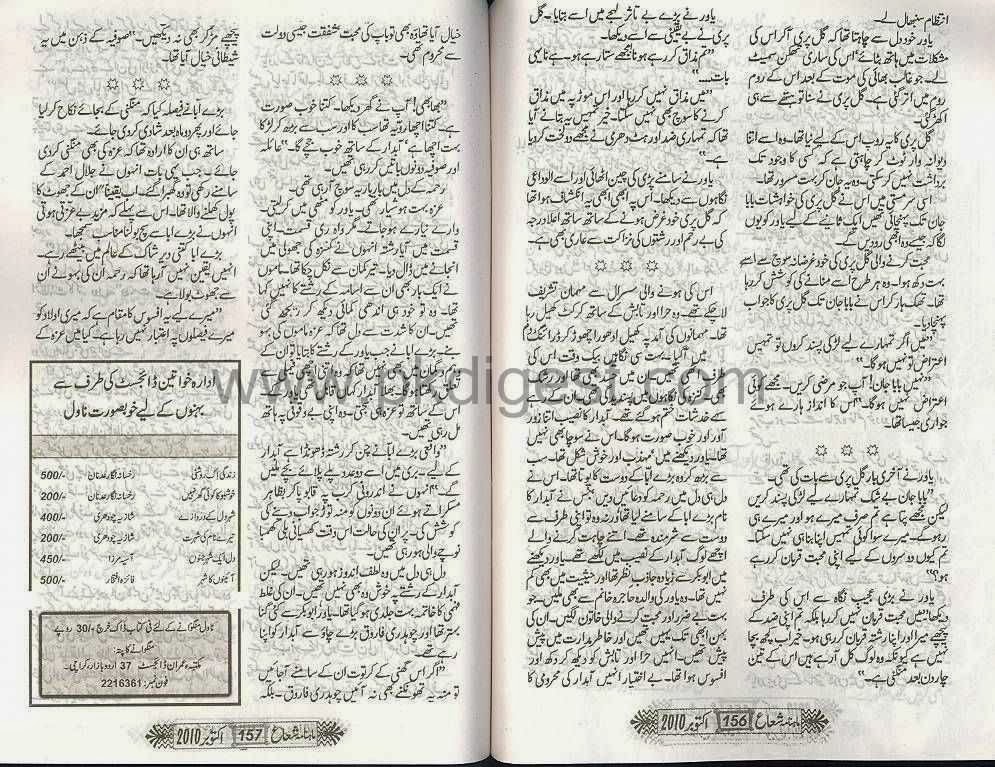 انتظام سنبھال لے۔
یاور خود دل سے چاہتا تھا کہ گل پری آ کر اس کی
مشکلات میں ہاتھ بٹائے۔ اس کی ساری تھکن سمیٹ
لے۔ جو غالب بھائی کی موت کے بعد اس کے روم
روم میں اتر گئی ہے۔ گل پری نے سنا تو ہتھے سے ہی
اکھڑ گئی۔
گل پری کا یہ روپ اس کے لیے نیا تھا۔ وہ اسے اتنا
دیوانہ وار ٹوٹ کر چاہتی ہے کہ کسی کا وجود تک
برداشت نہیں کر سکتی۔ وہ یہ جان کر بہت مسرور تھا۔
اسی سرمستی میں اس نے گل پری کی خواہشات بابا
جان تک پہنچائی تھیں ایک ثانیے کے لیے یاور کو یوں
لگا کہ جیسے وہ ابھی رو دیں گے۔
محبت کرنے والی گل پری کی خود غرضانہ سوچ سے اسے
بہت دکھ ہوا۔ وہ ہر طرح اسے منانے کی کوشش کر رہا
تھا۔ تھک ہار کر اس نے بابا جان تک گل پری کا جواب
پہنچا دیا۔
"میں اگر تمہارے لیے لڑکی پسند کروں تو تمہیں
اعتراض تو نہیں ہو گا۔"
"نہیں بابا جان! آپ جو مرضی کریں۔ مجھے کوئی
اعتراض نہیں ہو گا۔" اس کا انداز ہارے ہوئے
جواری جیسا تھا۔
یاور نے آخری بار گل پری سے بات کی تھی۔
"بابا جان بے شک تمہارے لیے لڑکی پسند کریں
لیکن مجھے پتا ہے تم صرف میرے ہو اور میرے ہی
رہو گے۔ میرے سوا کوئی تمہیں اپنا بنا ہی نہیں سکتا۔
تم کیوں دوسروں کے لیے اپنی محبت قربان کر رہے
ہو؟"
یاور نے بڑی عجیب نگاہ سے اس کی طرف
دیکھا "میں محبت قربان نہیں کر رہا بلکہ تم اپنی ضد کے
پیچھے میرا اور اپنا رشتہ قربان کر رہی ہو۔ خیر اب کچھ بچا
نہیں ہے کیونکہ وہ لوگ کل آ رہے ہیں اس کے تین
چار دن بعد منگنی ہے۔"
یاور نے بڑے بے تاثر لہجے میں اسے بتایا۔ گل
پری نے بے یقینی سے اسے دیکھا۔
"تم مذاق کر رہے ہو نا مجھے ستا رہے ہو۔ ہے نا یہی
بات۔۔۔"
"میں مذاق نہیں کر رہا اور اس موڑ پہ میں مذاق
کرنے کا سوچ بھی نہیں سکتا۔ خیر تمہیں یہ بتانے آیا
تھا کہ تمہاری ضد اور ہٹ دھرمی نے مجھے دو لخت کر دیا
ہے۔"
یاور نے سامنے پڑی کی چین اٹھائی اور اسے الوداعی
نگاہوں سے دیکھا۔ اس پہ ابھی ابھی یہ انکشاف ہوا تھا
کہ گل پری خود غرض ہونے کے ساتھ ساتھ اعلا درجہ
کی بے رحم اور رشتوں کی نزاکت سے عاری بھی ہے۔
اس کی ہونے والی سسرال سے مہمان تشریف
لا چکے تھے۔ وہ حرا اور تابش کے ساتھ کرکٹ کھیل رہا
تھا۔ مہمانوں کی آمد پہ کھیل ادھورا چھوڑ کر ڈرائنگ روم
میں آ گیا۔ بہت سی نگاہیں بیک وقت اس کی
خدشات ختم ہو گئے تھے۔ آبدار کا نصیب اتنا زور
آور اور خوب صورت ہو گا۔ اس نے سوچا بھی نہیں
تھا۔ یاور دیکھنے میں مہذب اور خوش شکل تھا۔ سب
سے بڑھ کر وہ بڑے ابا کے دوست کا پوتا تھا۔ اس نے
دل ہی دل میں رحمہ کو دعائیں دیں جس نے آبدار کا
نام بڑے ابا کے سامنے لیا تھا ورنہ وہ تو اپنی طرف سے
دوست سے شرمندہ تھے۔ اتنے چاہت کرنے والے
اچھے لوگ آبدار کے نصیب میں لکھے تھے۔ یاور دیکھنے
میں ابوبکر سے زیادہ جاذب نظر تھا اور حیثیت میں بھی کم
نہیں تھا۔ وہ یاور کی والدہ حاجرہ خانم سے بھی ملیں۔ جو
بہت بے ضرر اور محبت کرنے والی خاتون لگیں۔ ان کی
بہن ابھی تک یہیں تھیں اور خاطر مدارت میں پیش
پیش تھیں۔ انہیں حرا اور تابش کو دیکھ کر دکھ اور
افسوس ہوا تھا۔ بے اختیار انہیں آبدار کی محرومی کا
ماہنامہ شعاع 156 اکتوبر 2010
خیال آیا تھا وہ بھی تو باپ کی محبت شفقت جیسی دولت
سے محروم تھی۔
"بھابھی! آپ نے گھر دیکھا۔ کتنا خوب صورت
ہے۔ کتنا اچھا رویہ تھا سب کا اور سب سے بڑھ کر لڑکا
بہت اچھا ہے "آبدار کے ساتھ خوب جچے گا۔" عائلہ
اور صوفیہ دونوں باتیں کر رہی تھیں۔
رحمہ کے دل میں بار بار یہ سوچ آ رہی تھی۔
عزہ بہت ہوشیار تھی۔ یاور کو مٹھی میں کر لیتی۔
وارے نیارے ہو جاتے۔ مگر واہ ری قسمت۔ اپنی
قسمت میں آیا رشتہ انہوں نے کنزہ کی جھولی میں
انجانے میں ڈال دیا۔ تیر کمان سے نکل چکا تھا۔ ماموں
نے ایک بار بھی ان سے اسامہ کے رشتے کا نہیں کہا
تھا۔ وہ تو خود ہی اندھی کھائی دیکھ کر ریجھ گئی
تھیں۔ ان کا شدت سے دل تھا کہ عزہ ماموں کی بہو
بنے۔ بڑے ابا نے جب یاور کے رشتے کا بتایا تو ان کے
اس کے ساتھ تو عزہ ہی جچتی۔ وہ اپنی بے وقوفی پہ ہاتھ
مل رہی تھیں۔
"واقعی بڑے ابا نے چن کر رشتہ ڈھونڈا ہے آبدار
کے لیے۔ بری میں اسے دو عدد پلے پلائے بچے ملیں
گے۔" انہوں نے اندرونی کرب پہ قابو پا کر بظاہر
مسکراتے ہوئے ان دونوں کو منہ توڑ جواب دینے کی
کوشش کی۔ پر ان کی حالت اس وقت کھسیانی بلی کھمبا
نوچے والی ہو رہی تھی۔
دل ہی دل میں وہ لطف اندوز ہو رہی تھیں۔ لیکن
آبدار کے رشتے پہ خوش وہ بھی نہیں تھیں۔ ان کی غلط
فہمی کا خاتمہ بہت جلدی ہو گیا تھا۔ یاور ابوبکر سے کئی گنا
بہتر تھا اور چوہدری فاروق بڑے چاؤ سے آبدار کو اپنا
رہے تھے۔
"اگر اس گھنی کے کرتوت ان کے سامنے آ جائیں
تو منہ پہ تھوکنے بھی نہ آئیں چوہدری فاروق۔ بلکہ
پیچھے مڑ کر بھی نہ دیکھیں۔" صوفیہ کے ذہن میں یہ
شیطانی خیال آیا تھا۔
بڑے ابا نے فیصلہ کیا کہ منگنی کے بجائے نکاح کر لیا
جائے اور پھر دو ماہ بعد شادی کر دی جائے۔
ساتھ ہی ان کا ارادہ تھا کہ عزہ کی بھی منگنی کر دی
جائے۔ جب یہی بات انہوں نے جلال احمد کے
سامنے رکھی تو وہ گھبرا گئے۔ اب یقیناً ان کے جھوٹ کا
پول کھلنے والا تھا۔ اس سے پہلے کہ مزید بے عزتی ہوتی
انہوں نے بڑے ابا سے سچ بولنا مناسب سمجھا۔
بڑے ابا کتنی دیر شاک کے عالم میں بیٹھے رہے۔
انہیں یقین نہیں آ رہا تھا کہ رحمہ ان کی بہو نے ان
سے جھوٹ بولا ہے۔
"میرے لیے یہ افسوس کا مقام ہے کہ میری اولاد کو
میرے فیصلوں پہ اعتبار نہیں رہا ہے۔ کیا میں عزہ کے
ادارہ خواتین ڈائجسٹ کی طرف سے
بہنوں کے لیے خوبصورت ناول
زندگی اک روشنی رخسانہ نگار عدنان 500/-
خوشبو کا کوئی گھر نہیں رخسانہ نگار عدنان 200/-
شہرِ دل کے دروازے شازیہ چودھری 400/-
تیرے نام کی شہرت شازیہ چودھری 200/-
دل ایک شہرِ جنوں آسیہ مرزا 450/-
آئینوں کا شہر فائزہ افتخار 500/-
ناول منگوانے کے لئے فی کتاب ڈاک خرچ -/30 روپے
منگوانے کا پتہ:
مکتبہ عمران ڈائجسٹ 37 اردو بازار کراچی۔
فون نمبر: 2216361
ماہنامہ شعاع 157 اکتوبر 2010
www.pkdigest.com